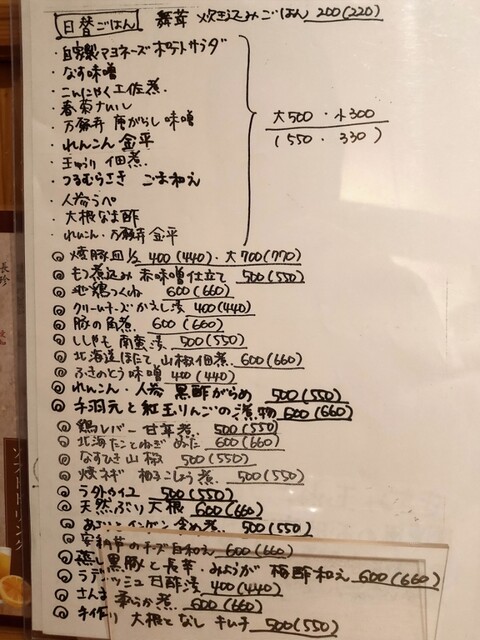 日替ごはん 舞茸 炊き込みごはん 200(220)
・自家製マヨネーズポテトサラダ
・なす味噌
・こんにゃく土佐煮
・春菊ナムル
・万願寺 唐がらし 味噌
・れんこん 金平
・きゅうり 佃煮
・つるむらさき ごま和え
・人参ラペ
・大根なま酢
・れんこん・万願寺 金平
大500・小300
(550・330)
◎ 燻豚皿 1/2 400(440)・大700(770)
◎ もつ煮込み 赤味噌仕立て 500(550)
◎ 地鶏つくね 600(660)
◎ クリームチーズかえし漬 400(440)
◎ 豚の角煮 600(660)
◎ ししゃも 南蛮漬 500(550)
◎ 北海道ほたて 山椒佃煮 600(660)
◎ ふきのとう味噌 400(440)
◎ れんこん・人参 黒酢がらめ 500(550)
◎ 手羽元と紅玉りんごの煮物 600(660)
◎ 鶏レバー 甘辛煮 500(550)
◎ 北海たことねぎ ぬた 600(660)
◎ なすひき山椒 500(550)
◎ 焼ネギ 柚子こしょう煮 500(550)
◎ ラタトゥイユ 500(550)
◎ 天然ぶり大根 600(660)
◎ あさりとインゲン 含め煮 500(550)
◎ 安納芋のチーズ白和え 600(660)
◎ 蒸し黒豚と長芋・みょうが 梅酢和え 600(660)
◎ ラディッシュ甘酢漬 400(440)
◎ さんま 柔らか煮 600(660)
◎ 大根となし キムチ 500(550)
長
珍